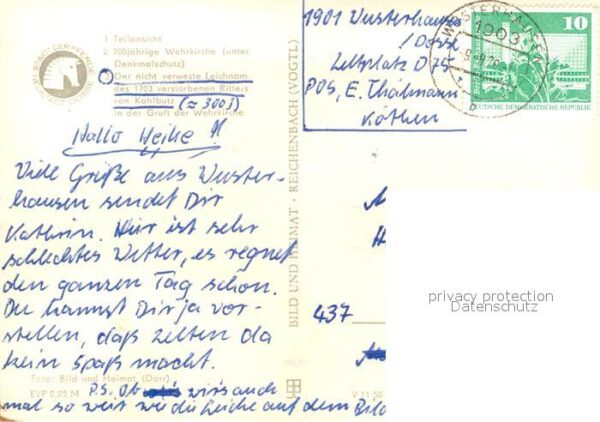 1 Teilansicht
2 700jährige Wehrkirche (unter
Denkmalschutz)
Der nicht verweste Leichnam
des 1703 verstorbenen Ritters
von Kahlbutz (≈ 300 J)
in der Gruft der Wehrkirche
STADT DER PFERDE
Hallo Heike!
Viele Grüße aus Wuster-
hausen sendet Dir
Kathrin. Hier ist sehr
schlechtes Wetter, es regnet
den ganzen Tag schon.
Du kannst Dir ja vor-
stellen, daß zelten da
kein Spaß macht.
Foto: Bild und Heimat (Dorr)
EVP 0,25 M
P.S. Ob wir's auch
mal so weit wie die Leiche auf dem Bild
BILD UND HEIMAT · REICHENBACH (VOGTL)
V 11 50
1901 Wusterhausen
/Dosse
Zeltplatz D 75
POS, E. Thälmann
Köthen
WUSTERHAUSEN
1903
10
DEUTSCHE DEMOKRATISCHE REPUBLIK
437
privacy protection
Datenschutz